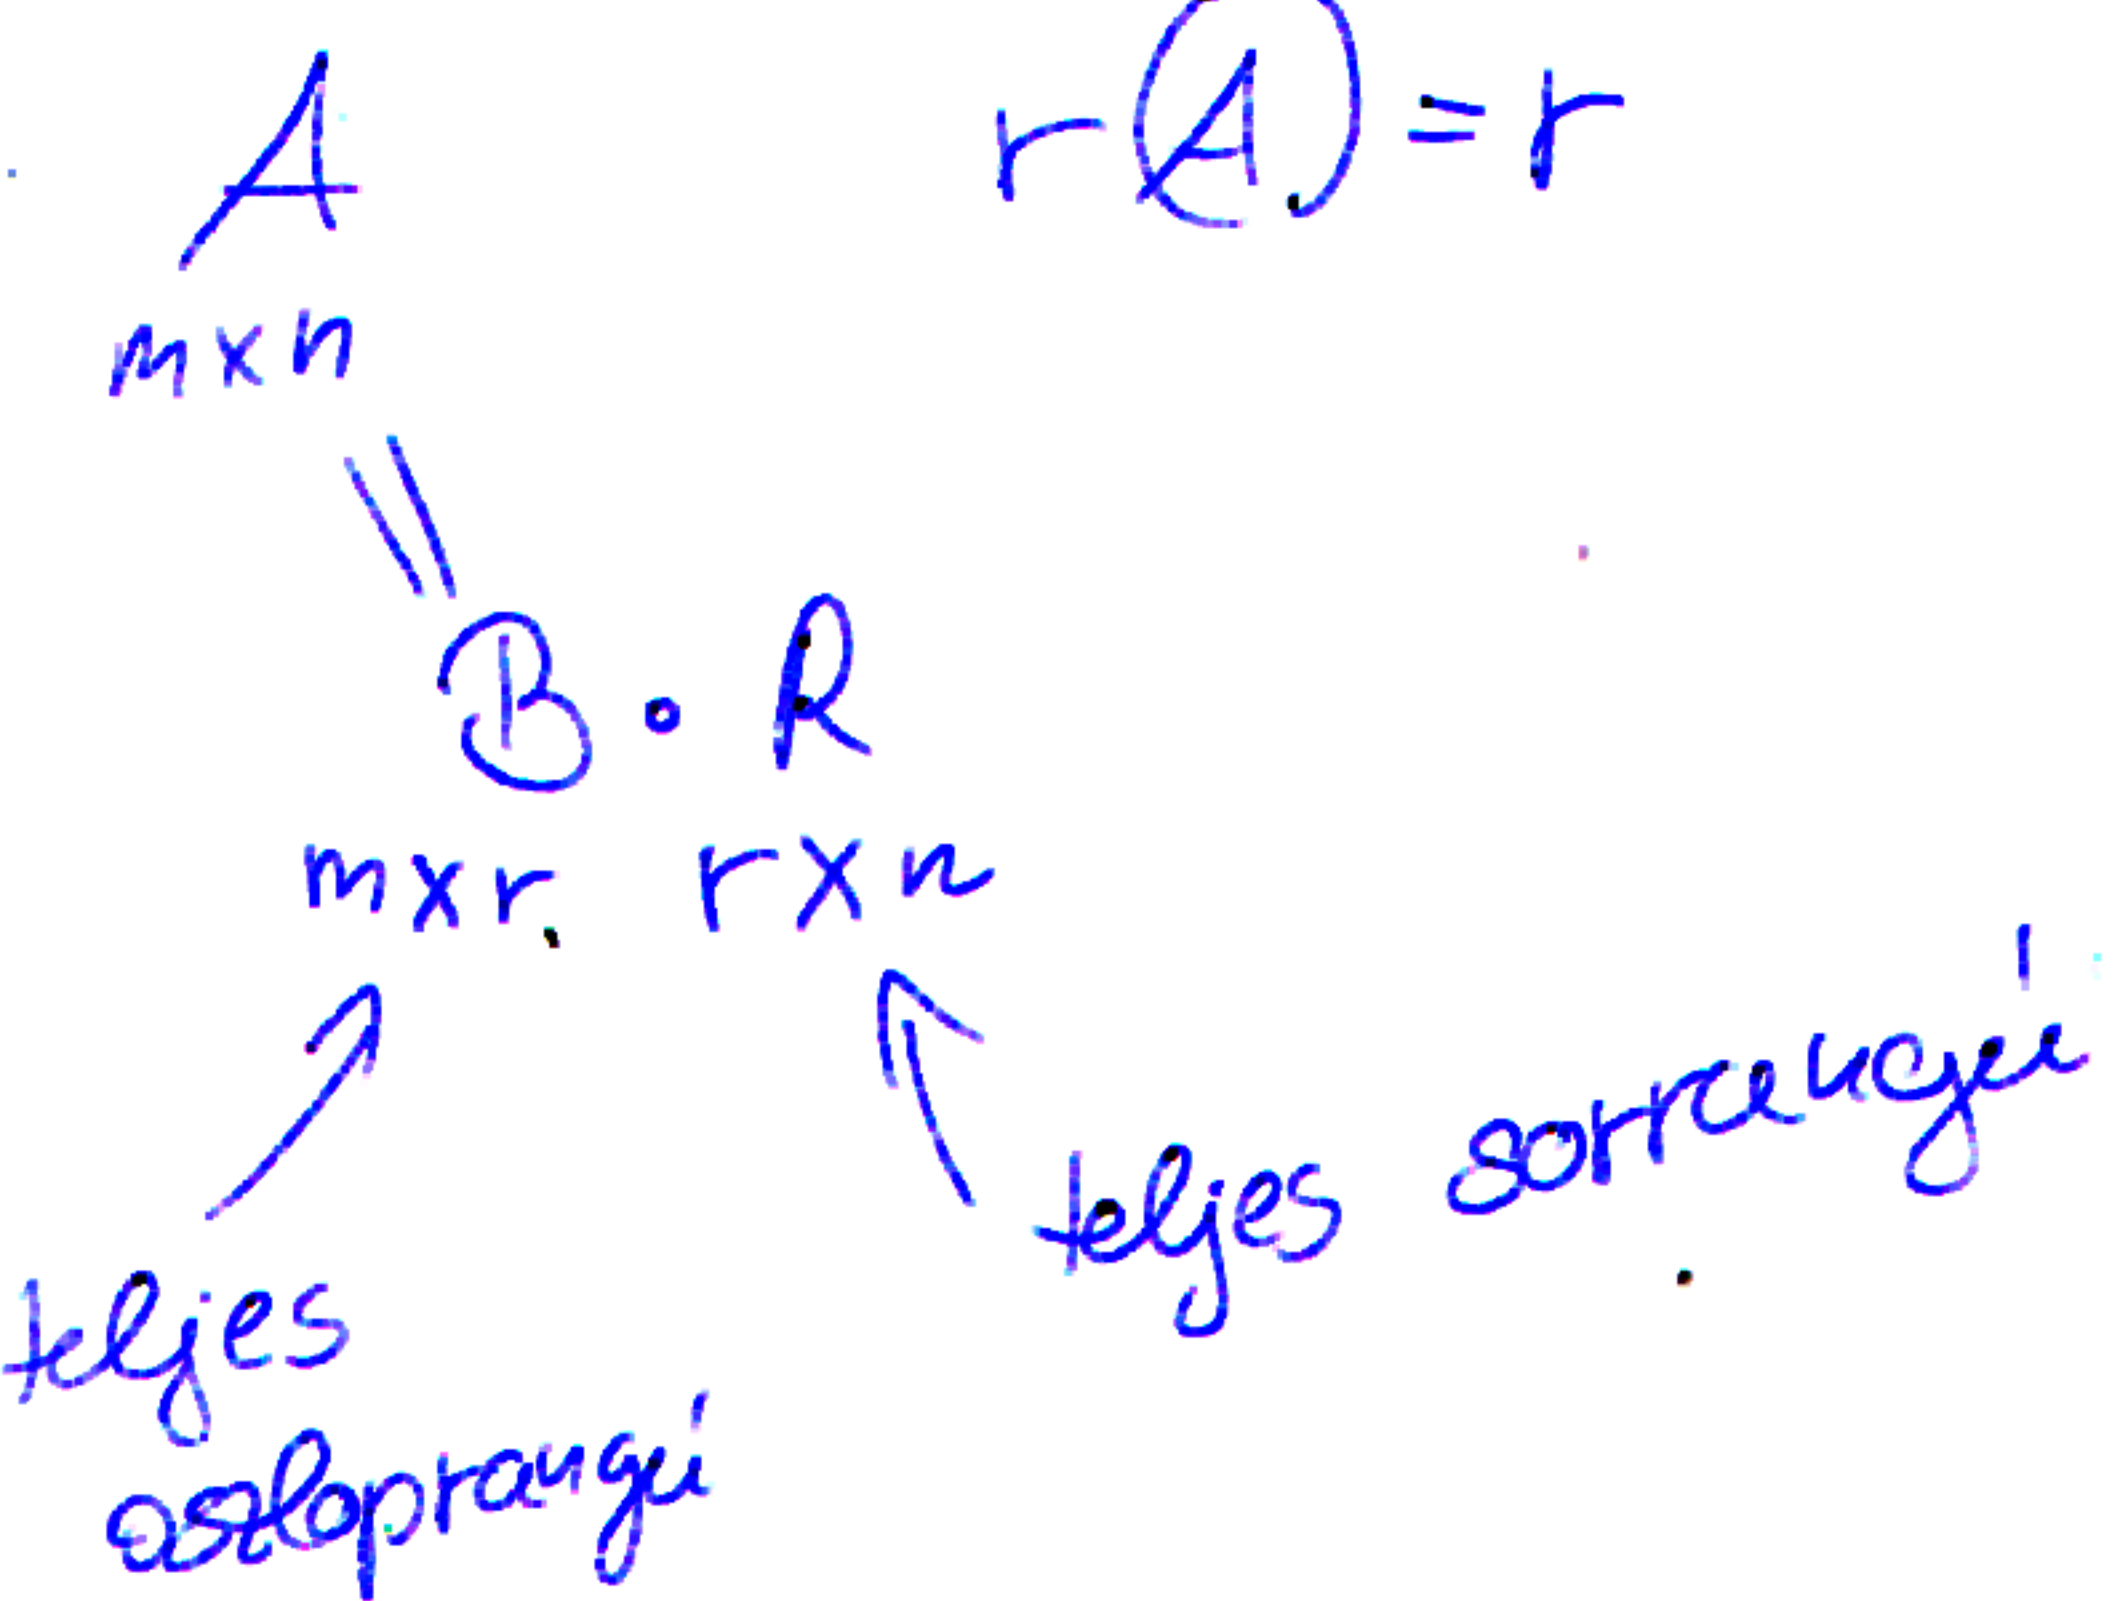 A r(A) = r
m×n
=
B · R
m×r r×n
teljes sorrangú
teljes
oszloprangú